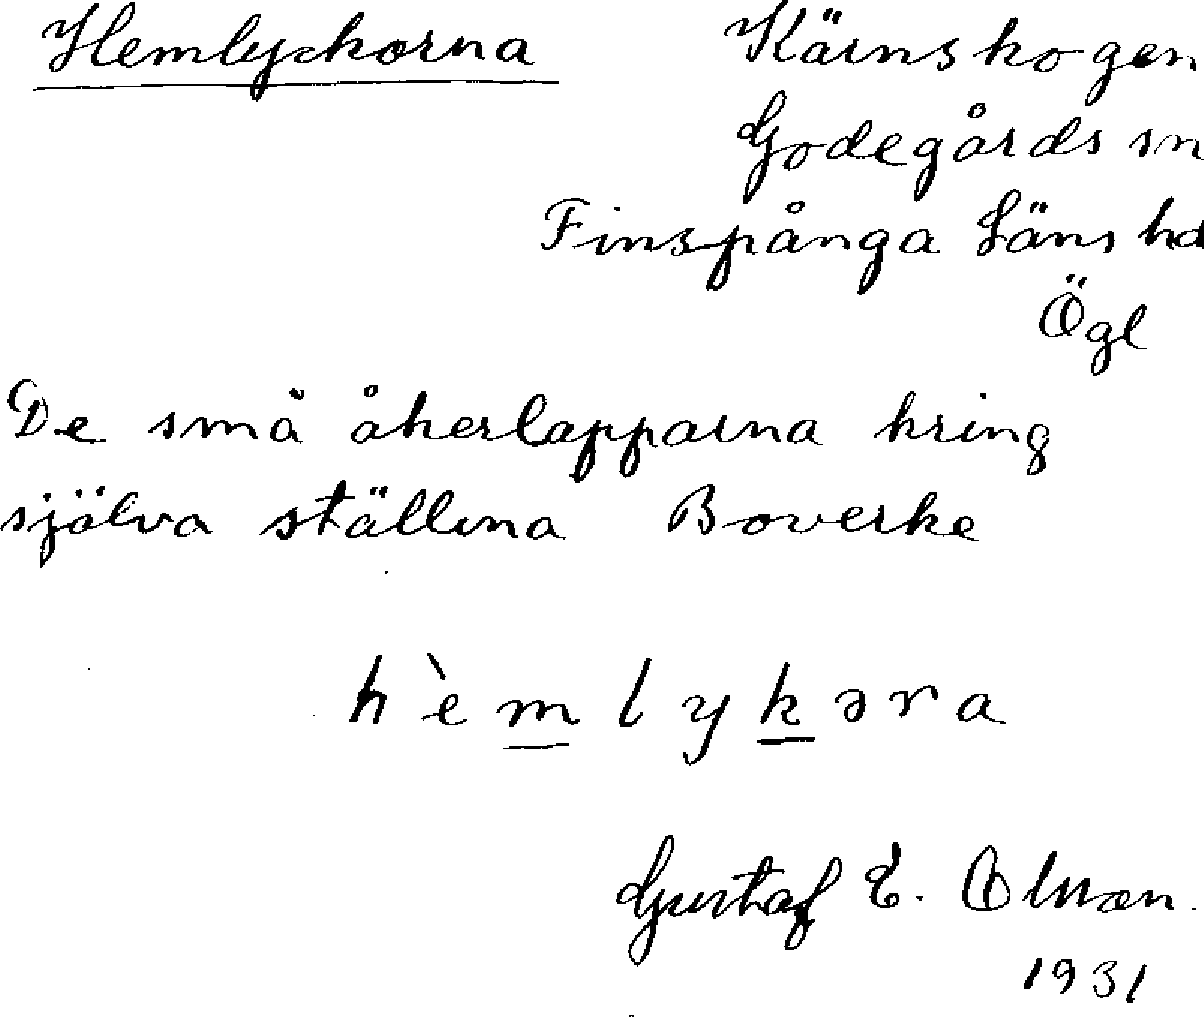 Hemlyckorna
Kärnskogen
Godegårds sn
Finspånga Läns hd
Ögl
De små åkerlapparna kring
själva ställena Boverke
h`emlykəra
Gustaf E. Olsson.
1931